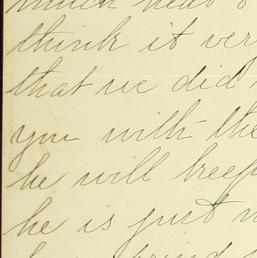 think it ver
that we did
you with the
he will keep
he is just